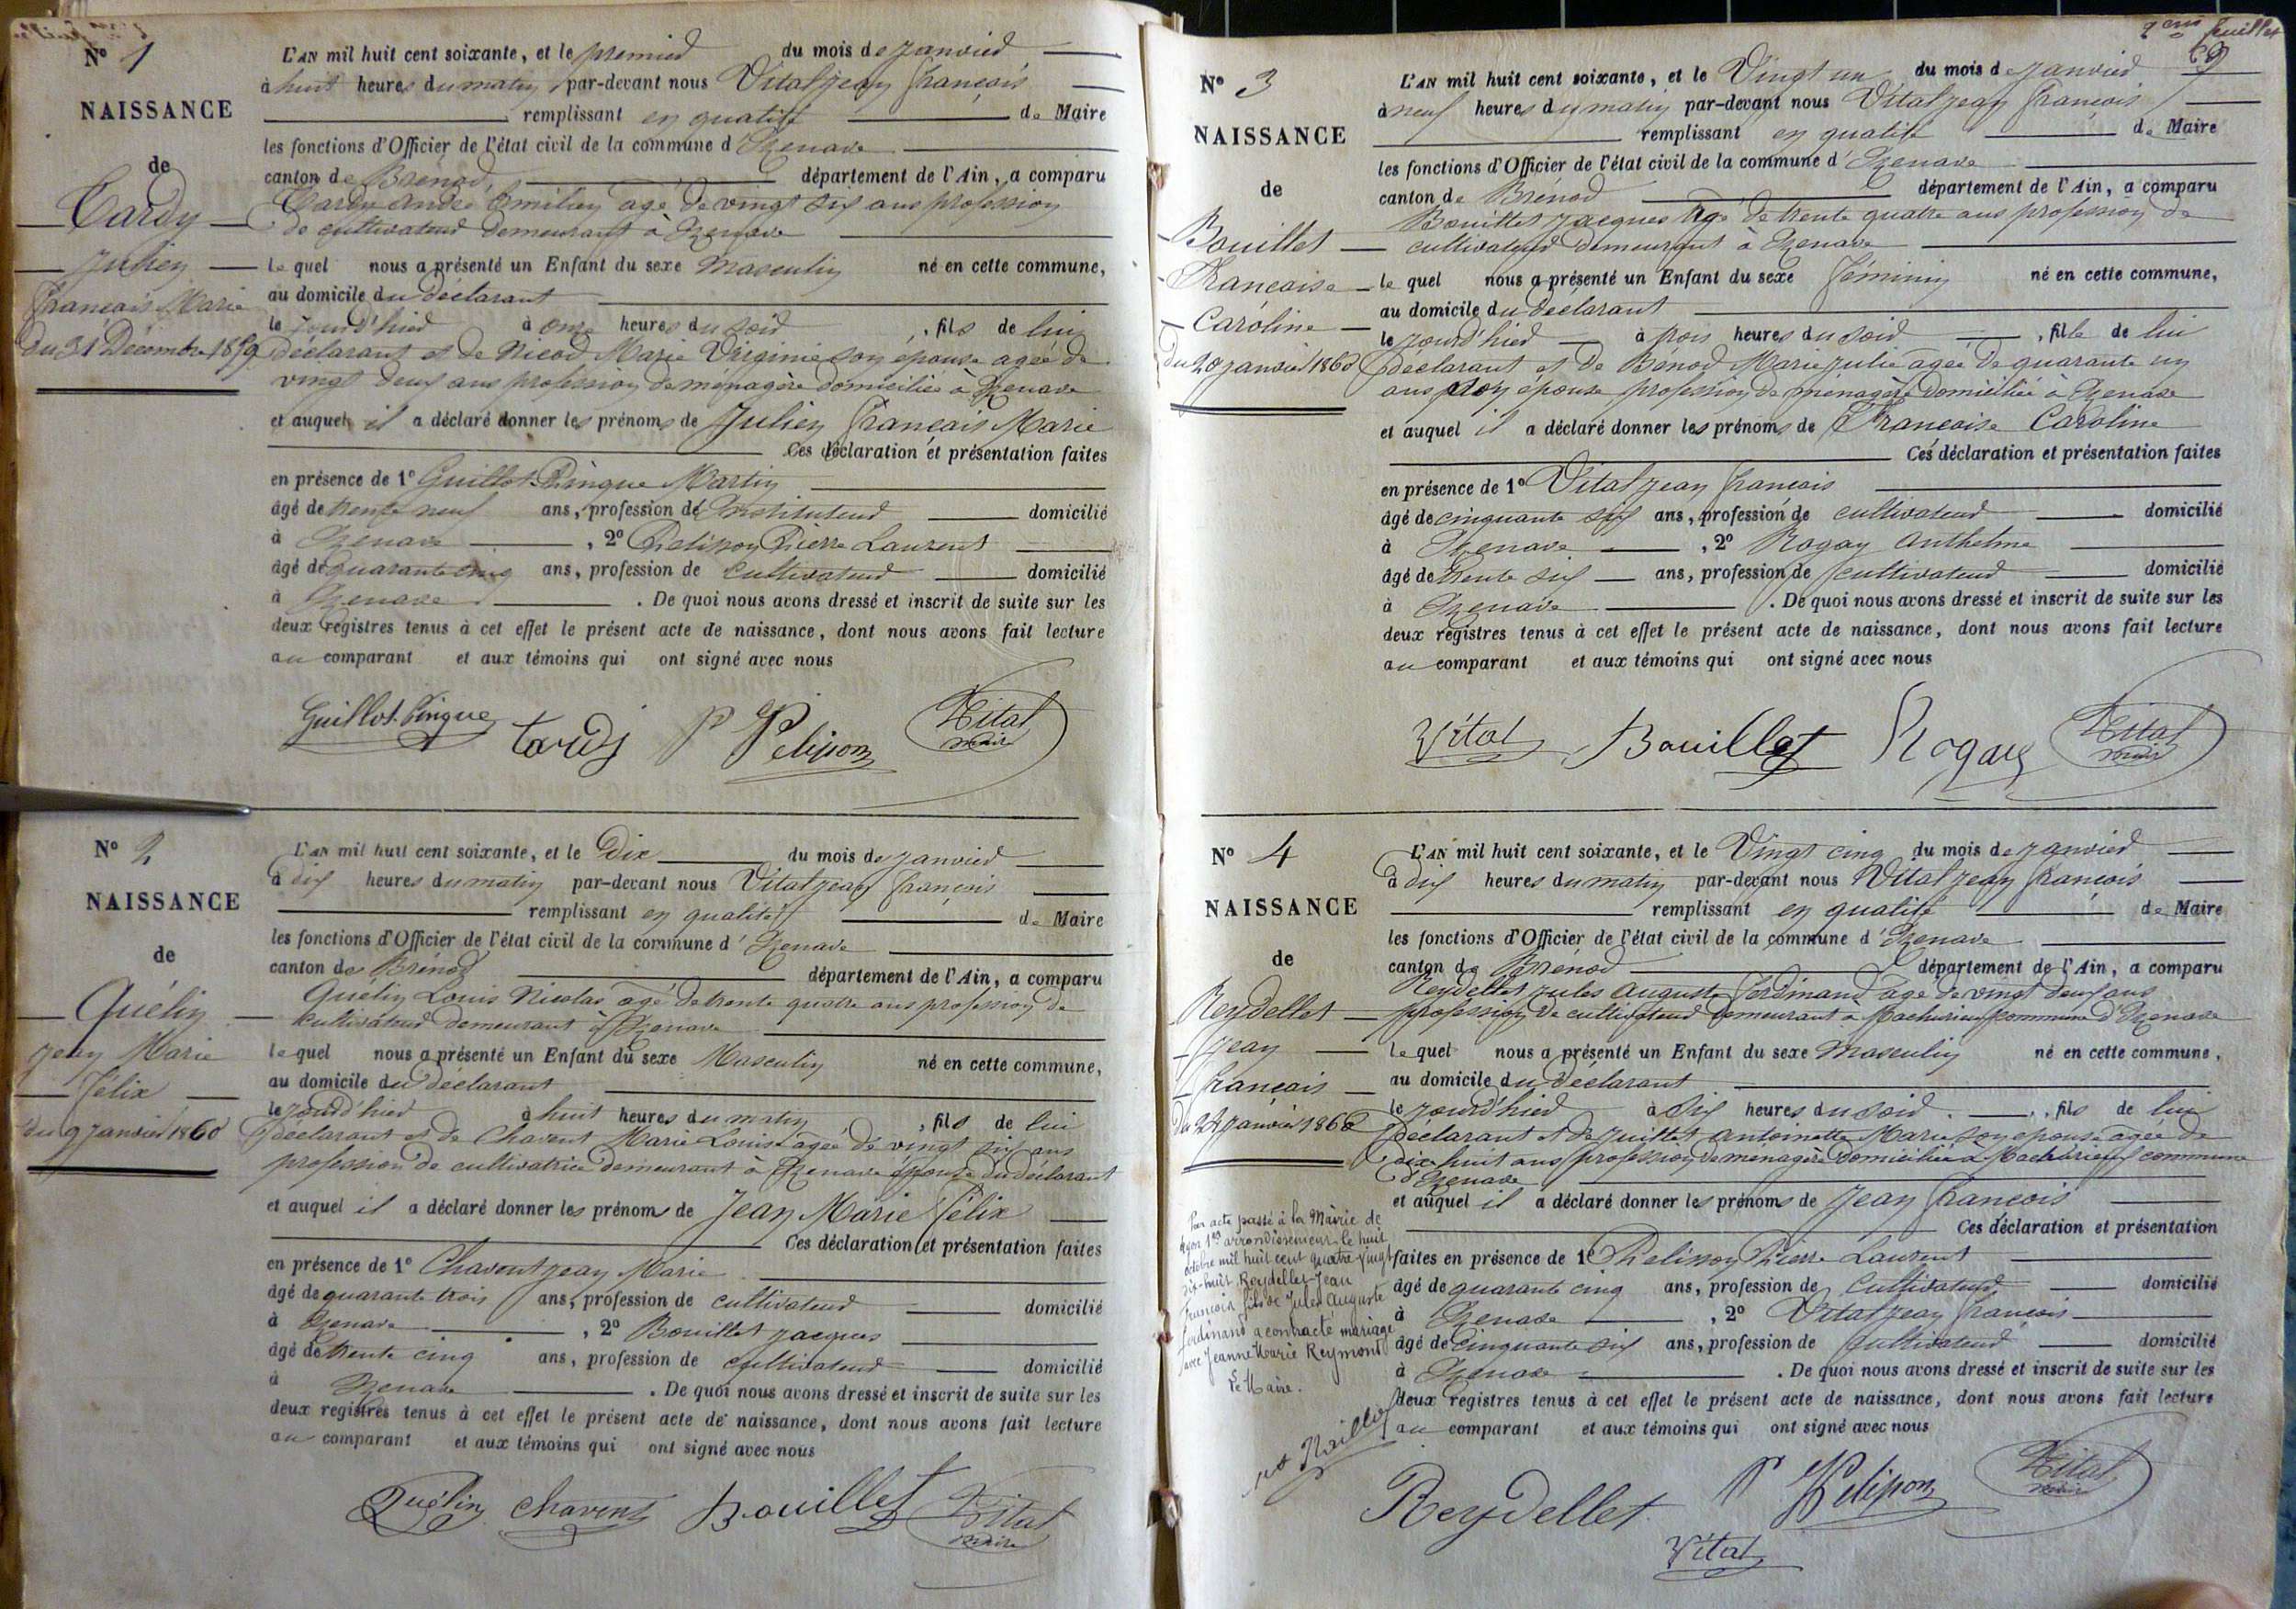 N° 1
NAISSANCE
de
Tardy
Julien
François Marie
du 31 Décembre 1859
L'AN mil huit cent soixante, et le premier du mois de Janvier
à huit heures du matin par-devant nous Vital Jean François
remplissant en qualité de Maire
les fonctions d'Officier de l'état civil de la commune d'Izenave
canton de Brénod, département de l'Ain, a comparu
Tardy André Emilien agé de vingt six ans profession
de cultivateur demeurant à Izenave
lequel nous a présenté un Enfant du sexe Masculin né en cette commune,
au domicile du déclarant
le jourd'hier à onze heures du soir, fils de lui
déclarant et de Nicod Marie Virginie son épouse agée de
vingt deux ans profession de ménagère domiciliée à Izenave
et auquel il a déclaré donner les prénoms de Julien François Marie
Ces déclaration et présentation faites
en présence de 1° Guillot-Pingue Martin
âgé de trente neuf ans, profession d'Instituteur domicilié
à Izenave, 2° Pelisson Pierre Laurent
âgé de quarante cinq ans, profession de cultivateur domicilié
à Izenave. De quoi nous avons dressé et inscrit de suite sur les
deux registres tenus à cet effet le présent acte de naissance, dont nous avons fait lecture
au comparant et aux témoins qui ont signé avec nous
Guillot-Pingue tardy P Pelisson Vital
maire
N° 2
NAISSANCE
de
Quélin
Jean Marie
Félix
du 9 Janvier 1860
L'AN mil huit cent soixante, et le Dix du mois de Janvier
à dix heures du matin par-devant nous Vital Jean François
remplissant en qualité de Maire
les fonctions d'Officier de l'état civil de la commune d'Izenave
canton de Brénod département de l'Ain, a comparu
Quélin Louis Nicolas agé de trente quatre ans profession de
cultivateur demeurant à Izenave
lequel nous a présenté un Enfant du sexe Masculin né en cette commune,
au domicile du déclarant
le jourd'hier à huit heures du matin, fils de lui
déclarant et de Chavent Marie Louise agée de vingt six ans
profession de cultivatrice demeurant à Izenave épouse du déclarant
et auquel il a déclaré donner les prénoms de Jean Marie Félix
Ces déclaration et présentation faites
en présence de 1° Chavent Jean Marie
âgé de quarante trois ans, profession de cultivateur domicilié
à Izenave, 2° Bouillet Jacques
âgé de trente cinq ans, profession de cultivateur domicilié
à Izenave. De quoi nous avons dressé et inscrit de suite sur les
deux registres tenus à cet effet le présent acte de naissance, dont nous avons fait lecture
au comparant et aux témoins qui ont signé avec nous
Quélin Chavent Bouillet Vital
maire
feuillet
N° 3
NAISSANCE
de
Bouillet
Francoise
Caroline
du 20 Janvier 1860
L'AN mil huit cent soixante, et le Vingt un du mois de Janvier
à neuf heures du matin par-devant nous Vital Jean François
remplissant en qualité de Maire
les fonctions d'Officier de l'état civil de la commune d'Izenave
canton de Brénod département de l'Ain, a comparu
Bouillet Jacques agé de trente quatre ans profession de
cultivateur demeurant à Izenave
lequel nous a présenté un Enfant du sexe féminin né en cette commune,
au domicile du déclarant
le jourd'hier à trois heures du soir, fille de lui
déclarant et de Bénod Marie Julie agée de quarante un
ans son épouse profession de ménagère domiciliée à Izenave
et auquel il a déclaré donner les prénoms de Francoise Caroline
Ces déclaration et présentation faites
en présence de 1° Vital Jean François
âgé de cinquante six ans, profession de cultivateur domicilié
à Izenave, 2° Rogay Anthelme
âgé de trente six ans, profession de cultivateur domicilié
à Izenave. De quoi nous avons dressé et inscrit de suite sur les
deux registres tenus à cet effet le présent acte de naissance, dont nous avons fait lecture
au comparant et aux témoins qui ont signé avec nous
Vital Bouillet Rogay Vital
maire
N° 4
NAISSANCE
de
Reydellet
Jean
François
du 24 Janvier 1860
L'AN mil huit cent soixante, et le Vingt cinq du mois de Janvier
à dix heures du matin par-devant nous Vital Jean François
remplissant en qualité de Maire
les fonctions d'Officier de l'état civil de la commune d'Izenave
canton de Brénod département de l'Ain, a comparu
Reydellet Jules Auguste Ferdinand agé de vingt deux ans
profession de cultivateur demeurant à Macherieu commune d'Izenave
lequel nous a présenté un Enfant du sexe Masculin né en cette commune,
au domicile du déclarant
le jourd'hier à six heures du soir, fils de lui
déclarant et de Juillet Antoinette Marie son épouse agée de
dix huit ans profession de ménagère domiciliée à commune
d'Izenave
et auquel il a déclaré donner les prénoms de Jean François
Ces déclaration et présentation
faites en présence de 1° Pelisson Pierre Laurent
âgé de quarante cinq ans, profession de cultivateur domicilié
à Izenave, 2° Vital Jean François
âgé de cinquante six ans, profession de cultivateur domicilié
à Izenave. De quoi nous avons dressé et inscrit de suite sur les
deux registres tenus à cet effet le présent acte de naissance, dont nous avons fait lecture
au comparant et aux témoins qui ont signé avec nous
Par acte passé à la Mairie de
Lyon 1er arrondissement le huit
octobre mil huit cent quatre vingt
dix-huit Reydellet Jean
François fils de Jules Auguste
Ferdinand a contracté mariage
avec Jeanne Marie Reymond
Le Maire.
Reydellet P Pelisson Vital
maire
Vital